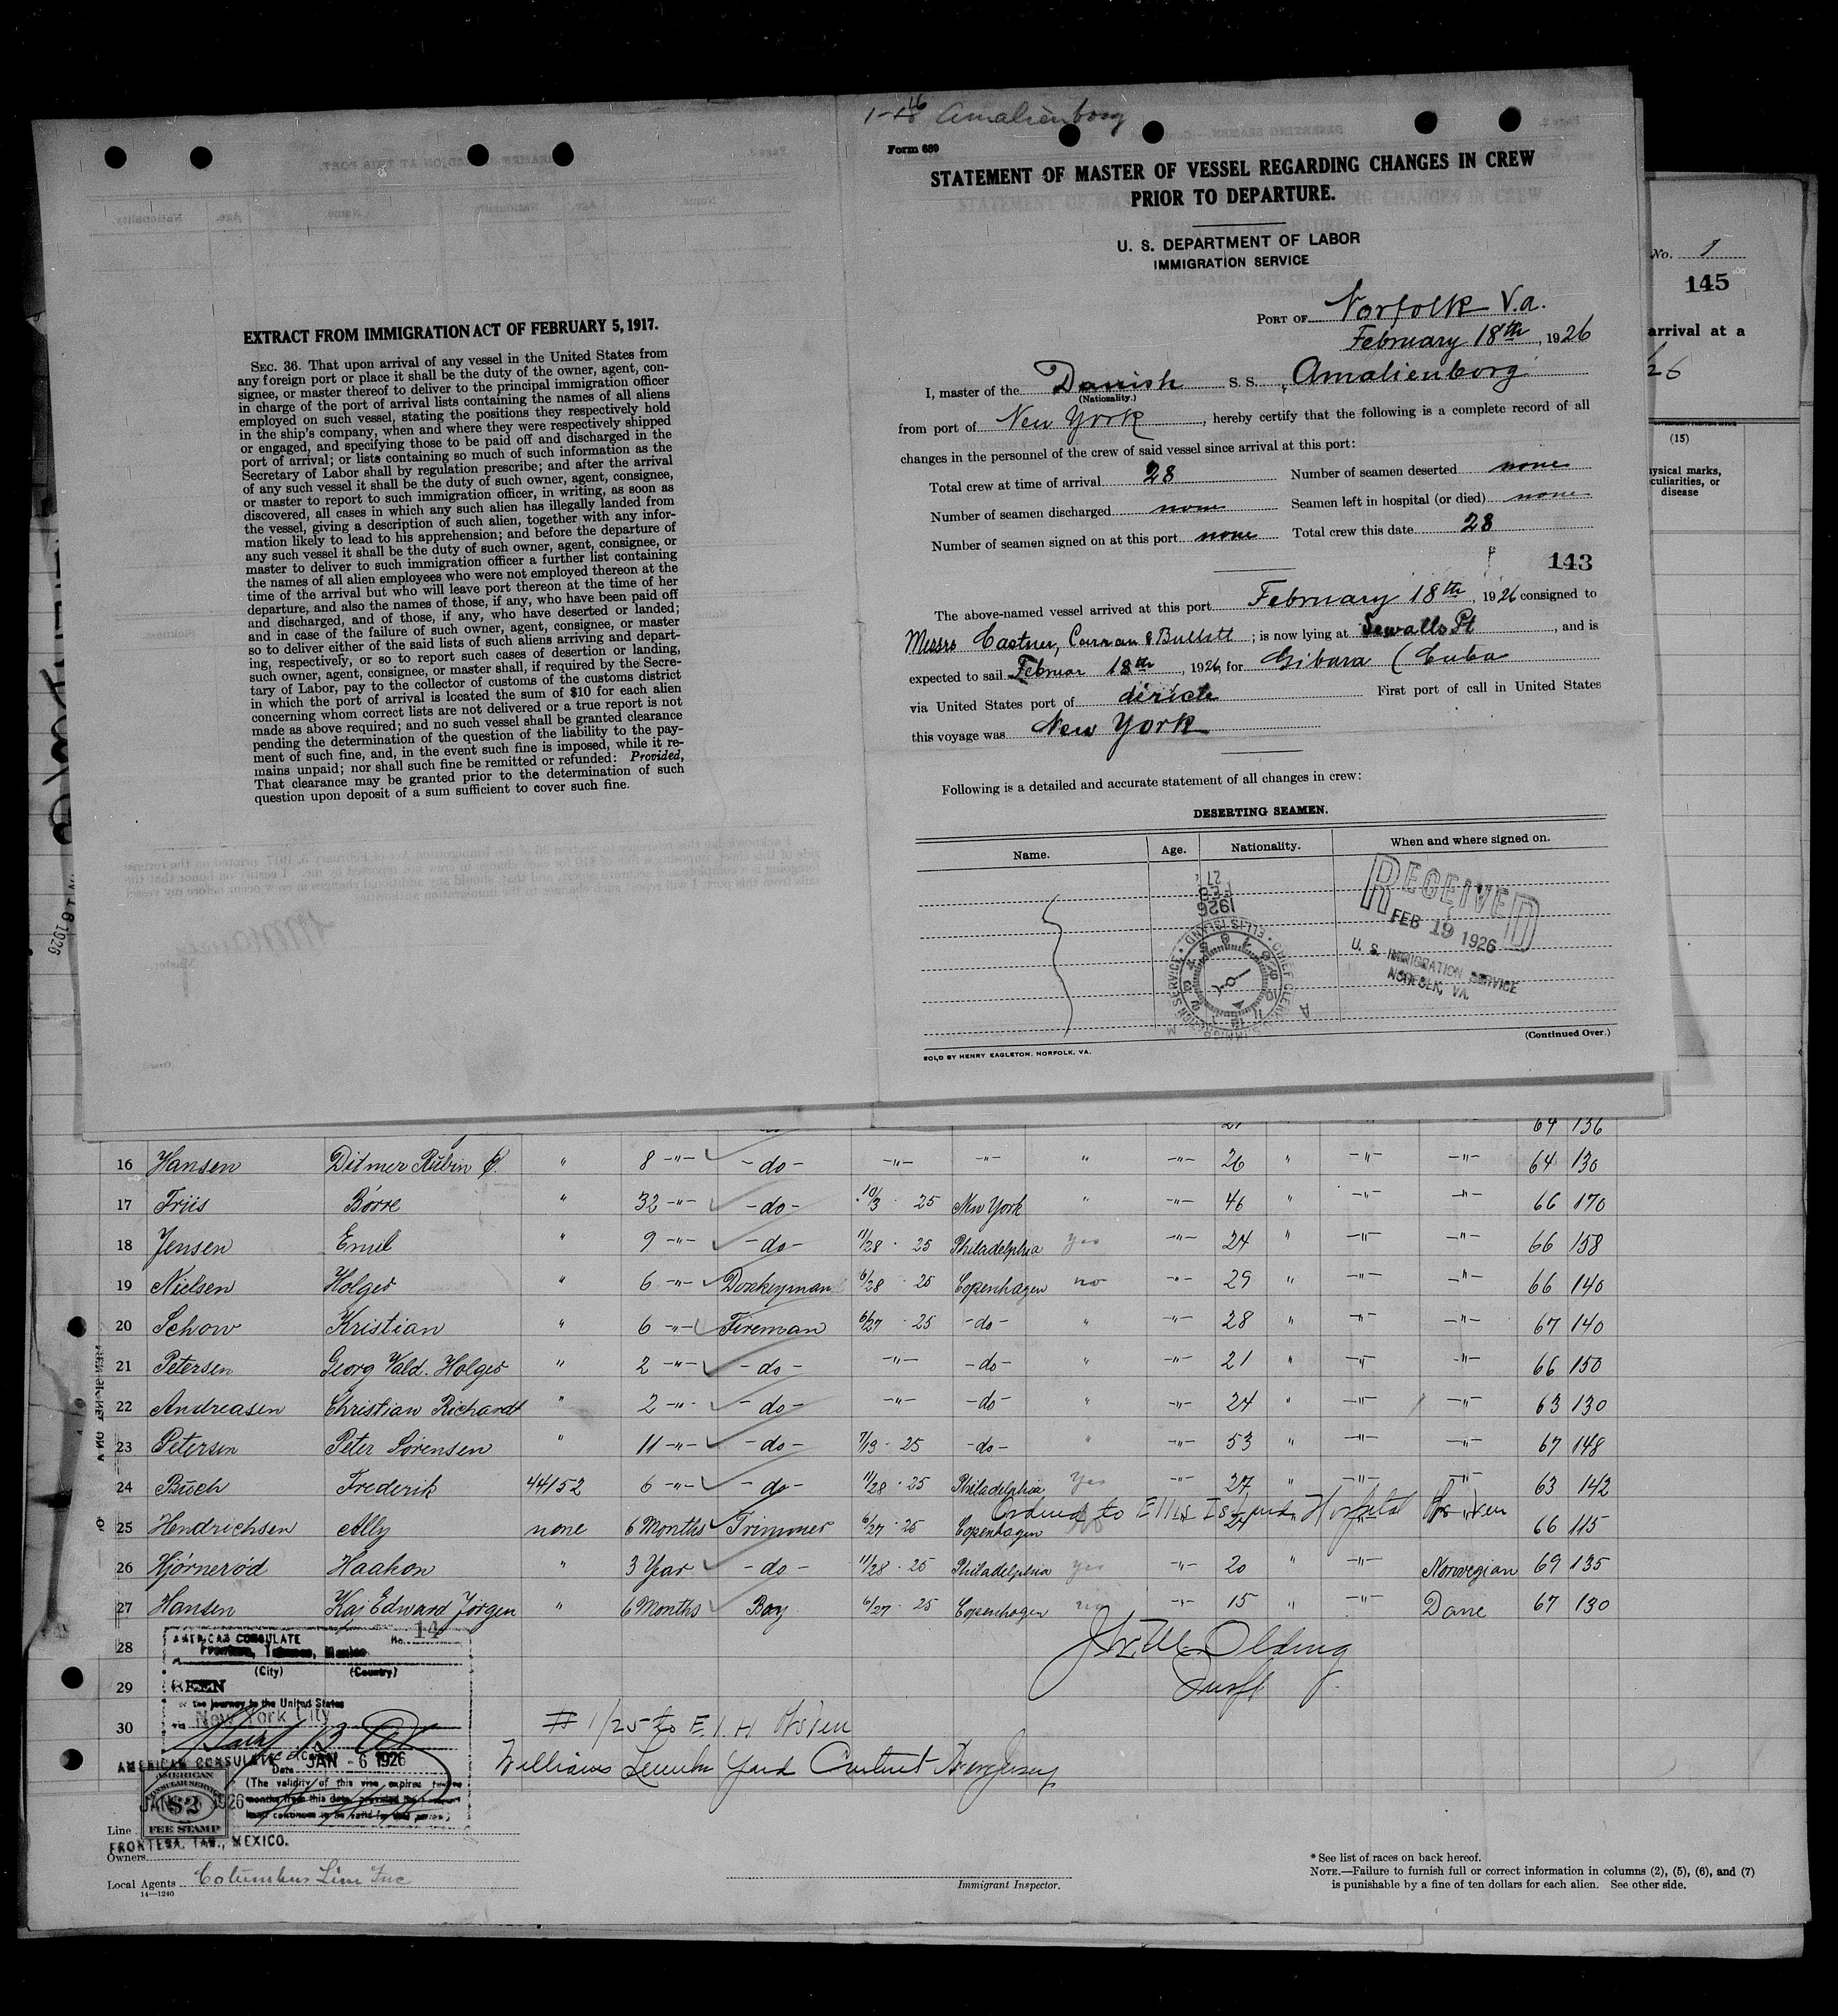 EXTRACT FROM IMMIGRATION ACT OF FEBRUARY 5, 1917.
SEC. 36. That upon arrival of any vessel in the United States from
any foreign port or place it shall be the duty of the owner, agent, con-
signee, or master thereof to deliver to the principal immigration officer
in charge of the port of arrival lists containing the names of all aliens
employed on such vessel, stating the positions they respectively hold
in the ship's company, when and where they were respectively shipped
or engaged, and specifying those to be paid off and discharged in the
port of arrival; or lists containing so much of such information as the
Secretary of Labor shall by regulation prescribe; and after the arrival
of any such vessel it shall be the duty of such owner, agent, consignee,
or master to report to such immigration officer, in writing, as soon as
discovered, all cases in which any such alien has illegally landed from
the vessel, giving a description of such alien, together with any infor-
mation likely to lead to his apprehension; and before the departure of
any such vessel it shall be the duty of such owner, agent, consignee, or
master to deliver to such immigration officer a further list containing
the names of all alien employees who were not employed thereon at the
time of the arrival but who will leave port thereon at the time of her
departure, and also the names of those, if any, who have been paid off
and discharged, and of those, if any, who have deserted or landed;
and in case of the failure of such owner, agent, consignee, or master
so to deliver either of the said lists of such aliens arriving and depart-
ing, respectively, or so to report such cases of desertion or landing,
such owner, agent, consignee, or master shall, if required by the Secre-
tary of Labor, pay to the collector of customs of the customs district
in which the port of arrival is located the sum of $10 for each alien
concerning whom correct lists are not delivered or a true report is not
made as above required; and no such vessel shall be granted clearance
pending the determination of the question of the liability to the pay-
ment of such fine, and, in the event such fine is imposed, while it re-
mains unpaid; nor shall such fine be remitted or refunded: Provided,
That clearance may be granted prior to the determination of such
question upon deposit of a sum sufficient to cover such fine.
Amalienborg
Form 689
STATEMENT OF MASTER OF VESSEL REGARDING CHANGES IN CREW
PRIOR TO DEPARTURE.
U. S. DEPARTMENT OF LABOR
IMMIGRATION SERVICE
PORT OF Norfolk V.a.
February 18th, 1926
I, master of the Danish S. S. Amalienborg
(Nationality.)
from port of New York, hereby certify that the following is a complete record of all
changes in the personnel of the crew of said vessel since arrival at this port:
Total crew at time of arrival 28 Number of seamen deserted none
Number of seamen discharged none Seamen left in hospital (or died) none
Number of seamen signed on at this port none Total crew this date 28
143
The above-named vessel arrived at this port February 18th, 1926 consigned to
Messrs Castner, Curran & Bullitt; is now lying at Sewalls Pt, and is
expected to sail Februar 18th, 1926, for Gibara (Cuba
via United States port of diricte First port of call in United States
this voyage was New York
Following is a detailed and accurate statement of all changes in crew:
DESERTING SEAMEN.
Name. Age. Nationality. When and where signed on.
RECEIVED
FEB 19 1926
U. S. IMMIGRATION SERVICE
NORFOLK, VA.
1926
FEB
27
SOLD BY HENRY EAGLETON, NORFOLK, VA.
(Continued Over.)
No. 1
145
arrival at a
26
(15)
ysical marks,
culiarities, or
disease
64 136
16 Hansen Ditmer Rubin C. " 8 -"- -do- -"- -"- " -"- 26 " -"- -"- 64 130
17 Friis Börre " 32 -"- -do- 10/3 25 New York " -"- 46 " -"- -"- 66 170
18 Jensen Emil " 9 -"- -do- 11/28 25 Philadelphia yes -"- 24 " -"- -"- 66 158
19 Nielsen Holger " 6 -"- Donkeyman 6/28 25 Copenhagen no -"- 29 " -"- -"- 66 140
20 Schow Kristian " 6 -"- Fireman 6/27 25 -do- " -"- 28 " -"- -"- 67 140
21 Petersen Georg Vald. Holger " 2 -"- -do- -"- -do- " -"- 21 " -"- -"- 66 150
22 Andreasen Christian Richardt " 2 -"- -do- -"- -do- " -"- 24 " -"- -"- 63 130
23 Petersen Peter Sörensen " 11 -"- -do- 7/13 25 -do- " -"- 53 " -"- -"- 67 148
24 Buch Frederik 44152 6 -"- -do- 11/28 25 Philadelphia Yes -"- 27 " -"- -"- 63 142
Ordered to Ellis Island Hospital
25 Hendrichsen Ally none 6 Months Trimmer 6/27 25 Copenhagen 66 115
26 Hjörneröd Haakon " 3 Year -do- 11/28 25 Philadelphia yes -"- 20 " -"- Norwegian 69 135
27 Hansen Kaj Edward Jörgen " 6 Months Boy 6/27 25 Copenhagen no -"- 15 " -"- Dane 67 130
28
29
30
AMERICAN CONSULATE No. 14
Frontera, Tabasco, Mexico
(City) (Country)
SEEN
the journey to the United States
via New York City
AMERICAN CONSULATE
Date JAN -6 1926
(The validity of this visa expires twelve
months from this date provided the
AMERICAN
CONSULAR SERVICE
$2
FEE STAMP
JAN 1926
FRONTERA, TAB., MEXICO.
# 1/25 to E. I. H
Line
Owners
Local Agents Columbus Line Inc
14—1240
Immigrant Inspector.
* See list of races on back hereof.
NOTE.—Failure to furnish full or correct information in columns (2), (5), (6), and (7)
is punishable by a fine of ten dollars for each alien. See other side.